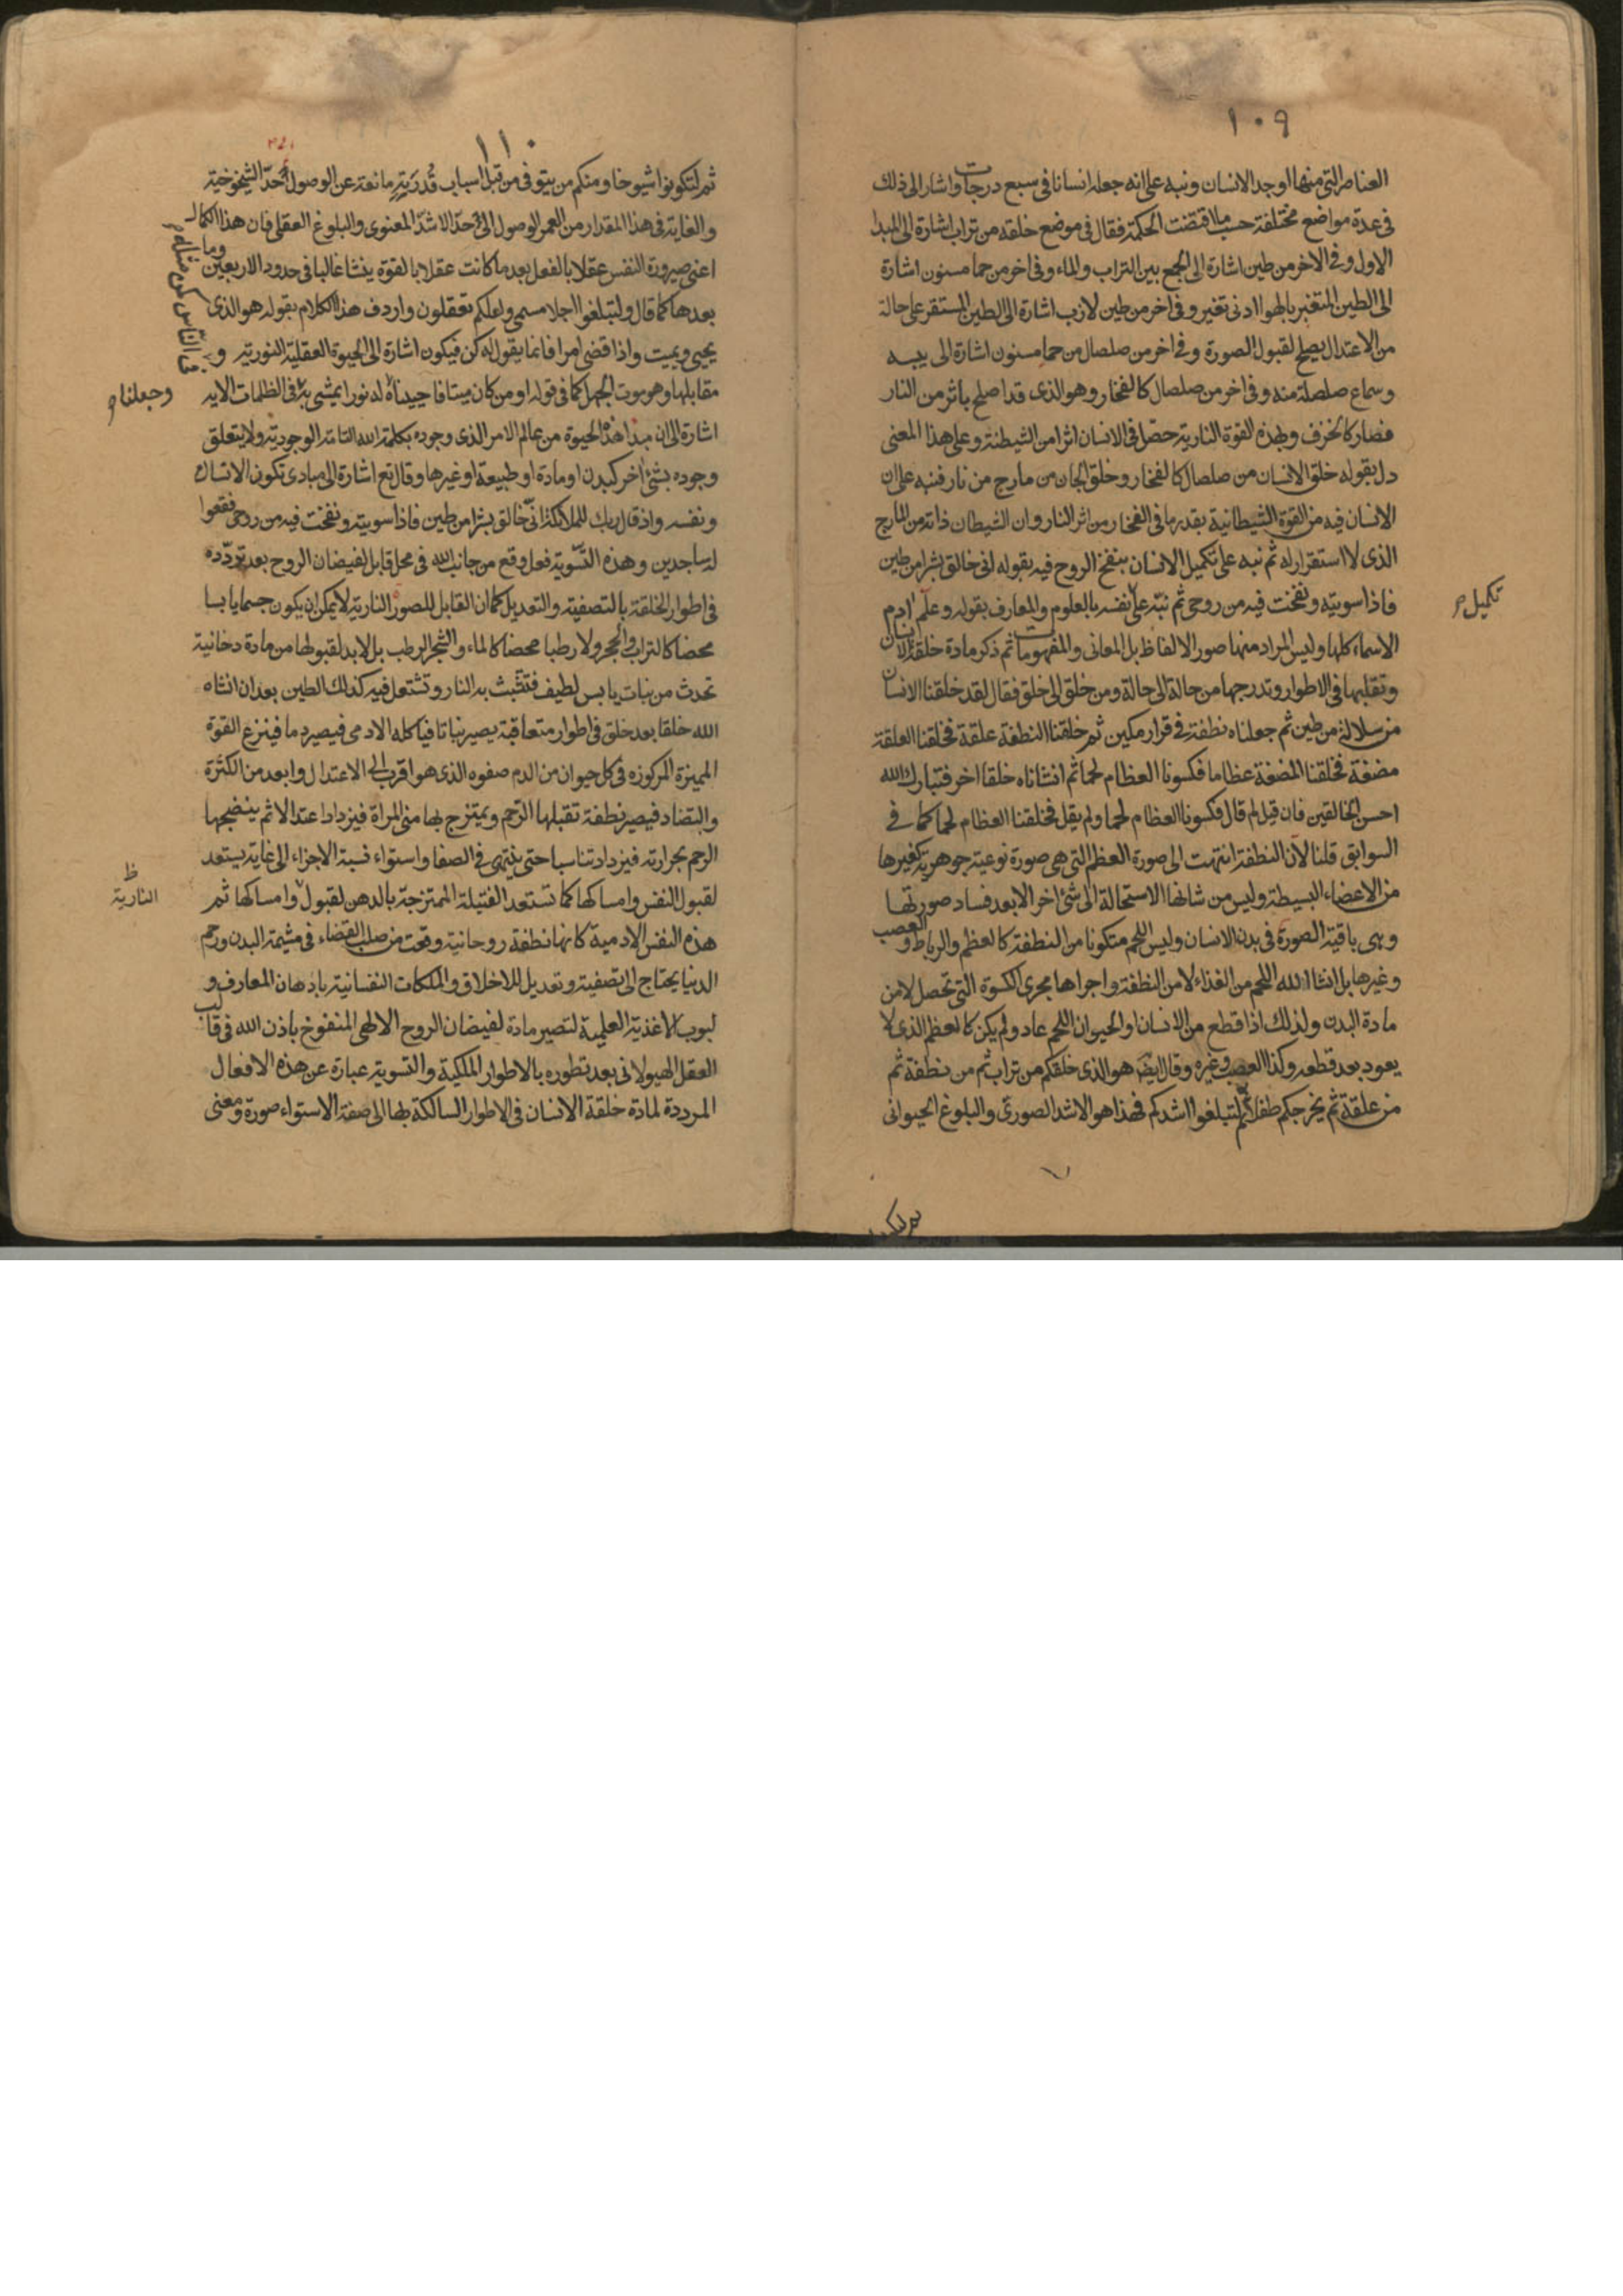 ١٠٩
العناصر التى منها اوجد الانسان ونبه على انه جعله انسانا فى سبع درجات واشار الى ذلك
فى عدة مواضع مختلفة حسب ما اقتضت الحكمة فقال فى موضع خلقه من تراب اشارة الى المبدا
الاول وفى الاخر من طين اشارة الى الجمع بين التراب والماء وفى اخر من حما مسنون اشارة
الى الطين المتغير بالهوا ادنى تغير وفى اخر من طين لازب اشارة الى الطين المستقر على حالة
من الاعتدال يصلح لقبول الصورة وفى اخر من صلصال من حما مسنون اشارة الى يبسه
وسماع صلصلة منه وفى اخر من صلصال كالفخار وهو الذى قد اصلح باثر من النار
فصار كالخزف وبهذه القوة النارية حصل فى الانسان اثرا من الشيطنة وعلى هذا المعنى
دل بقوله خلق الانسان من صلصال كالفخار وخلق الجان من مارج من نار فنبه على ان
الانسان فيه من القوة الشيطانية بقدر ما فى الفخار من اثر النار وان الشيطان ذاته من المارج
الذى لا استقرار له ثم نبه على تكميل الانسان بنفخ الروح فيه بقوله انى خالق بشرا من طين
فاذا سويته ونفخت فيه من روحى ثم نبّه على نفسه بالعلوم والمعارف بقوله وعلم ادم
تكميل
الاسماء كلها وليس المراد منها صور الالفاظ بل المعانى والمفهومات ثم ذكر مادة خلقة الانسان
وتقلبها فى الاطوار وتدرجها من حالة الى حالة ومن خلق الى خلق فقال لقد خلقنا الانسان
من سلالة من طين ثم جعلناه نطفة فى قرار مكين ثم خلقنا النطفة علقة فخلقنا العلقة
مضغة فخلقنا المضغة عظاما فكسونا العظام لحما ثم انشاناه خلقا اخر فتبارك الله
احسن الخالقين فان قيل لم قال فكسونا العظام لحما ولم يقل فخلقنا العظام لحما كما فى
السوابق قلنا لان النطفة انتهت الى صورة العظم التى هى صورة نوعية جوهرية كغيرها
من الاعضاء البسيطة وليس من شانها الاستحالة الى شئ اخر الا بعد فساد صورتها
وهى باقية الصورة فى بدن الانسان وليس اللحم متكونا من النطفة كالعظم والرباط والعصب
وغيرها بل انشا الله اللحم من الغذاء لا من النطفة واجراها مجرى الكسوة التى تحصل لا من
مادة البدن ولذلك اذا قطع من الانسان او الحيوان اللحم عاد ولم يكن كالعظم الذى لا
يعود بعد قطعه وكذا العصب وغيره وقال ايضا هو الذى خلقكم من تراب ثم من نطفة ثم
من علقة ثم يخرجكم طفلا ثم لتبلغوا اشدكم فهذا هو الاشد الصورى والبلوغ الحيوانى
١١٠
ثم لتكونوا شيوخا ومنكم من يتوفى من قبل اسباب قدرية مانعة عن الوصول الى حدّ الشيخوخية
والغاية فى هذا المقدار من العمر الوصول الى حدّ الاشدّ المعنوى والبلوغ العقلى فان هذا الكمال
اعنى صيرورة النفس عقلا بالفعل بعد ما كانت عقلا بالقوة ينشا غالبا فى حدود الاربعين وما
بعدها كما قال ولتبلغوا اجلا مسمى ولعلكم تعقلون واردف هذا الكلام بقوله هو الذى
يحيى ويميت واذا قضى امرا فانما يقول له كن فيكون اشارة الى الحيوة العقلية النورية و
مقابلها وهو موت الجهل كما فى قوله او من كان ميتا فاحييناه له نورا يمشى به فى الظلمات الايه
وجعلنا
فى الناس كمن مثله
اشارة الى ان مبدا هذه الحيوة من عالم الامر الذى وجوده بكلمة الله التامة الوجودية ولا يتعلق
وجوده بشئ اخر كبدن او مادة او طبيعة او غيرها وقال تع اشارة الى مبادى تكون الانسان
ونفسه واذ قال ربك للملائكة انّى خالق بشرا من طين فاذا سويته ونفخت فيه من روحى فقعوا
له ساجدين وهذه التّسوية فعل وقع من جانب الله فى محل قابل لفيضان الروح بعد تردّده
فى اطوار الخلقة بالتصفية والتعديل كما ان القابل للصور النارية لا يمكن ان يكون جسما يابسا
محضا كالتراب والحجر ولا رطبا محضا كالماء والشجر الرطب بل لابد لقبولها من مادة دخانية
تحدث من نبات يابس لطيف فتتشبث به النار وتشتعل فيه كذلك الطين بعد ان انشاه
الله خلقا بعد خلق فى اطوار متعاقبة يصير نباتا فياكله الادمى فيصير دما فينزع القوة
المميزة المركوزه فى كل حيوان من الدم صفوه الذى هو اقرب الى الاعتدال وابعد من الكثرة
والتضاد فيصير نطفة تقبلها الرّحم ويمتزج بها منى المراة فيزداد اعتدالا ثم ينضجها
الرحم بحرارته فيزداد تناسبا حتى ينتهى فى الصفا واستواء نسبة الاجزاء الى غاية يستعد
لقبول النفس وامساكها كما تستعد الفتيلة الممتزجة بالدهن لقبول وامساكها ثم
ظ
النارية
هذه النفس الادمية كانها نطفة روحانية وقعت من صلب القضاء فى مشيمة البدن ورحم
الدنيا يحتاج الى تصفية وتعديل للاخلاق والملكات النفسانية بادهان المعارف و
لبوب الاغذية العلمية لتصير مادة لفيضان الروح الالهى المنفوخ باذن الله فى قالب
العقل الهيولانى بعد تطوره بالاطوار الملكية والتسوية عبارة عن هذه الافعال
المرددة لمادة خلقة الانسان فى الاطوار السالكة بها الى صفة الاستواء صورة ومعنى